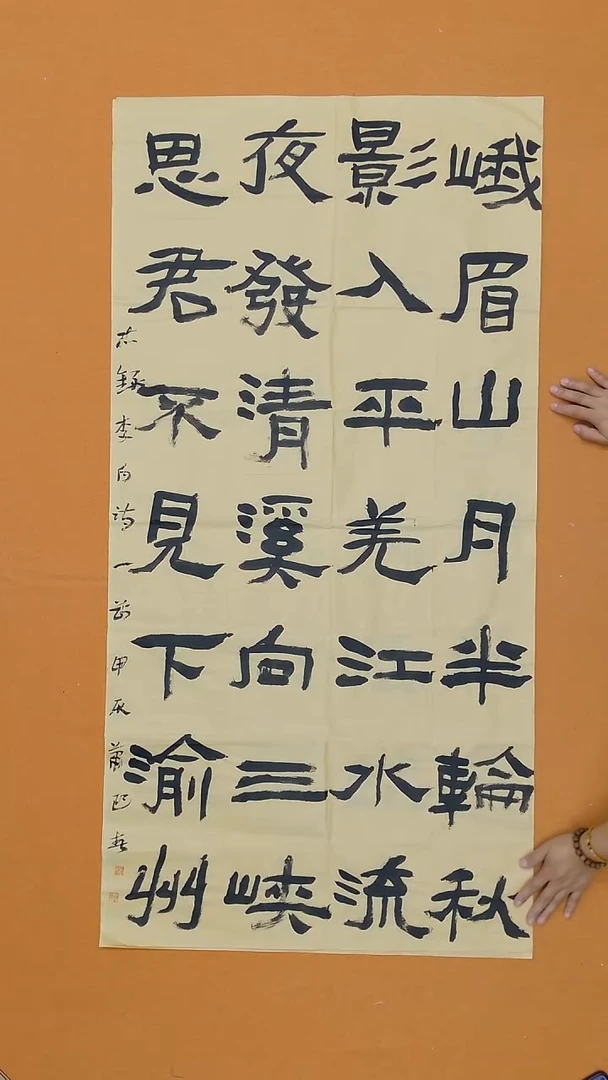 峨眉山月半輪秋
影入平羌江水流
夜發清溪向三峽
思君不見下渝州
錄李白詩一首甲辰